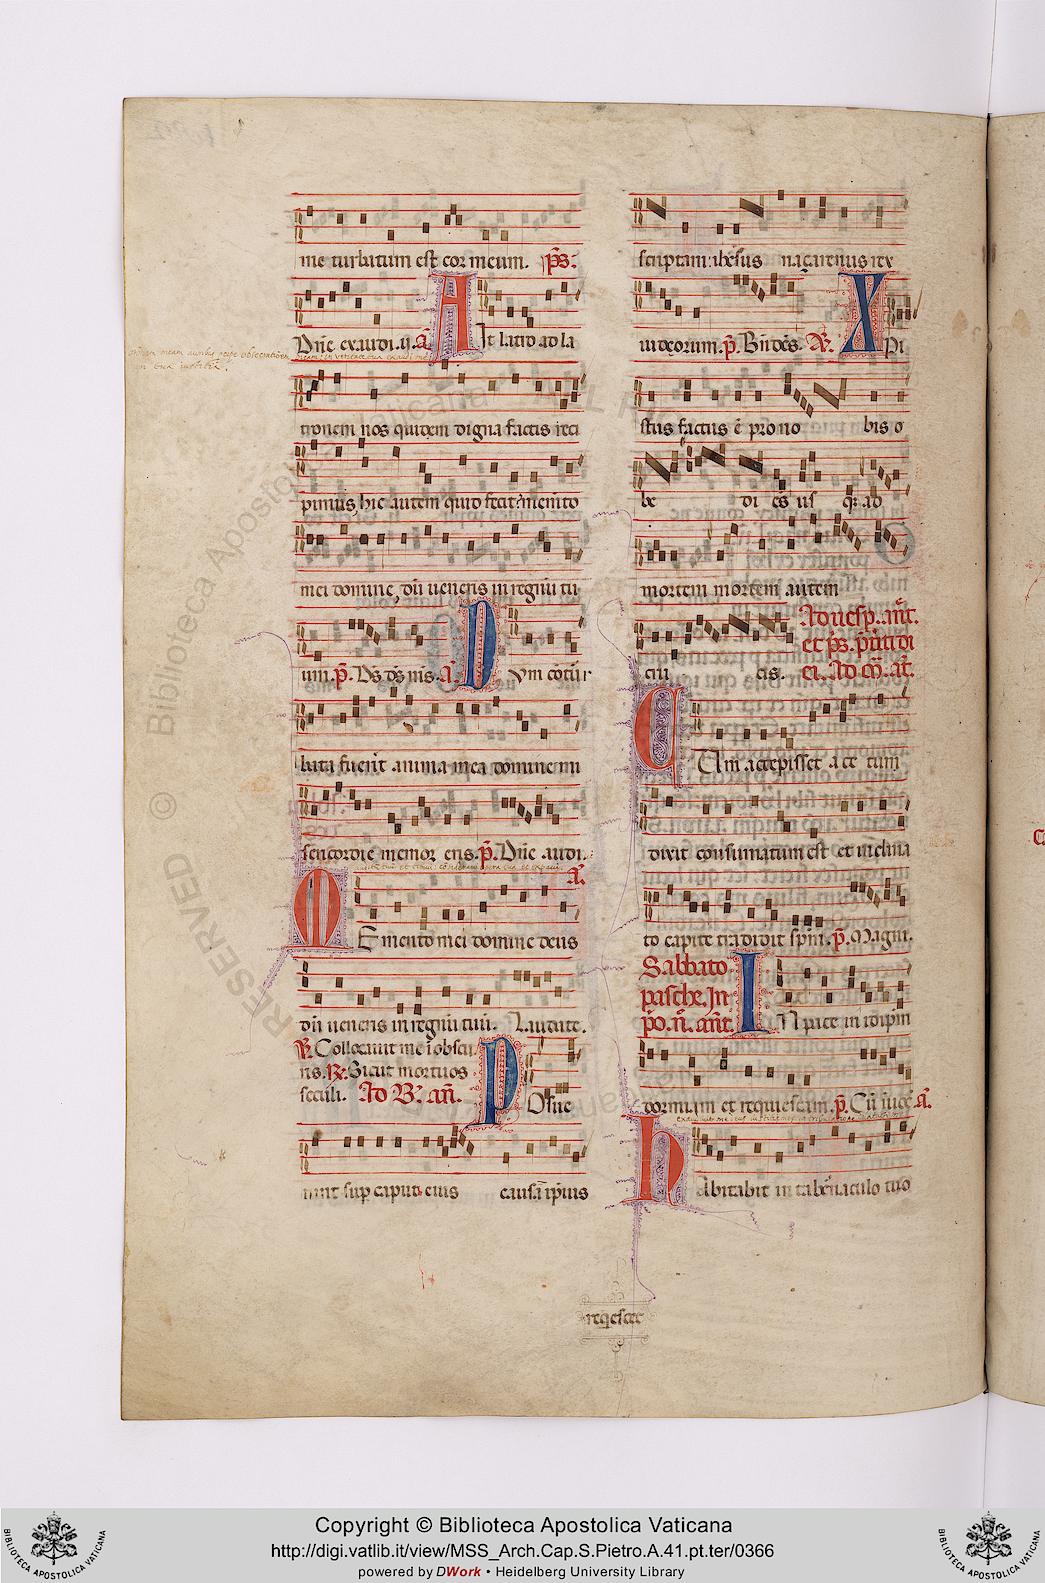 me turbatum est cor meum. ps.
Dñe exaudi .ij. a. Ait latro ad la
tronem nos quidem digna factis reci
pimus hic autem quid fecit memēto
mei domine dū ueneris in regnū tu
um. p̄. Ds ds ms. a. Dum cōtur
bata fuerit anima mea domine mi
sericordie memor eris. p̄. Dñe audi.
a.
Memento mei domine deus
dū ueneris in regnū tuū. Laudate.
Collocauit me ī obscu
ris. Sicut mortuos
seculi. Ad B. an. Posue
runt sup caput eius causā ipsius
scriptam: ihesus nazarenus rex
iudeorum. p̄. Bndcs. Xpi
stus factus ē pro no bis o
be di ens us q; ad
mortem mortem autem
cru cis. Ad uesp. ant.
et ps. pmi di
ei. Ad
Cum accepisset acetum
dixit consumatum est et inclina
to capite tradidit spm. p̄. Magni.
Sabbato
pasche. In
po. n. ant. In pace in idipm
dormiam et requiescam. p̄. Cū īuoc. a.
Habitabit in tabernaculo tuo
reqescet
RESERVED © Biblioteca Apostolica Vaticana
Copyright © Biblioteca Apostolica Vaticana
http://digi.vatlib.it/view/MSS_Arch.Cap.S.Pietro.A.41.pt.ter/0366
powered by DWork • Heidelberg University Library
BIBLIOTECA APOSTOLICA VATICANA
BIBLIOTECA APOSTOLICA VATICANA